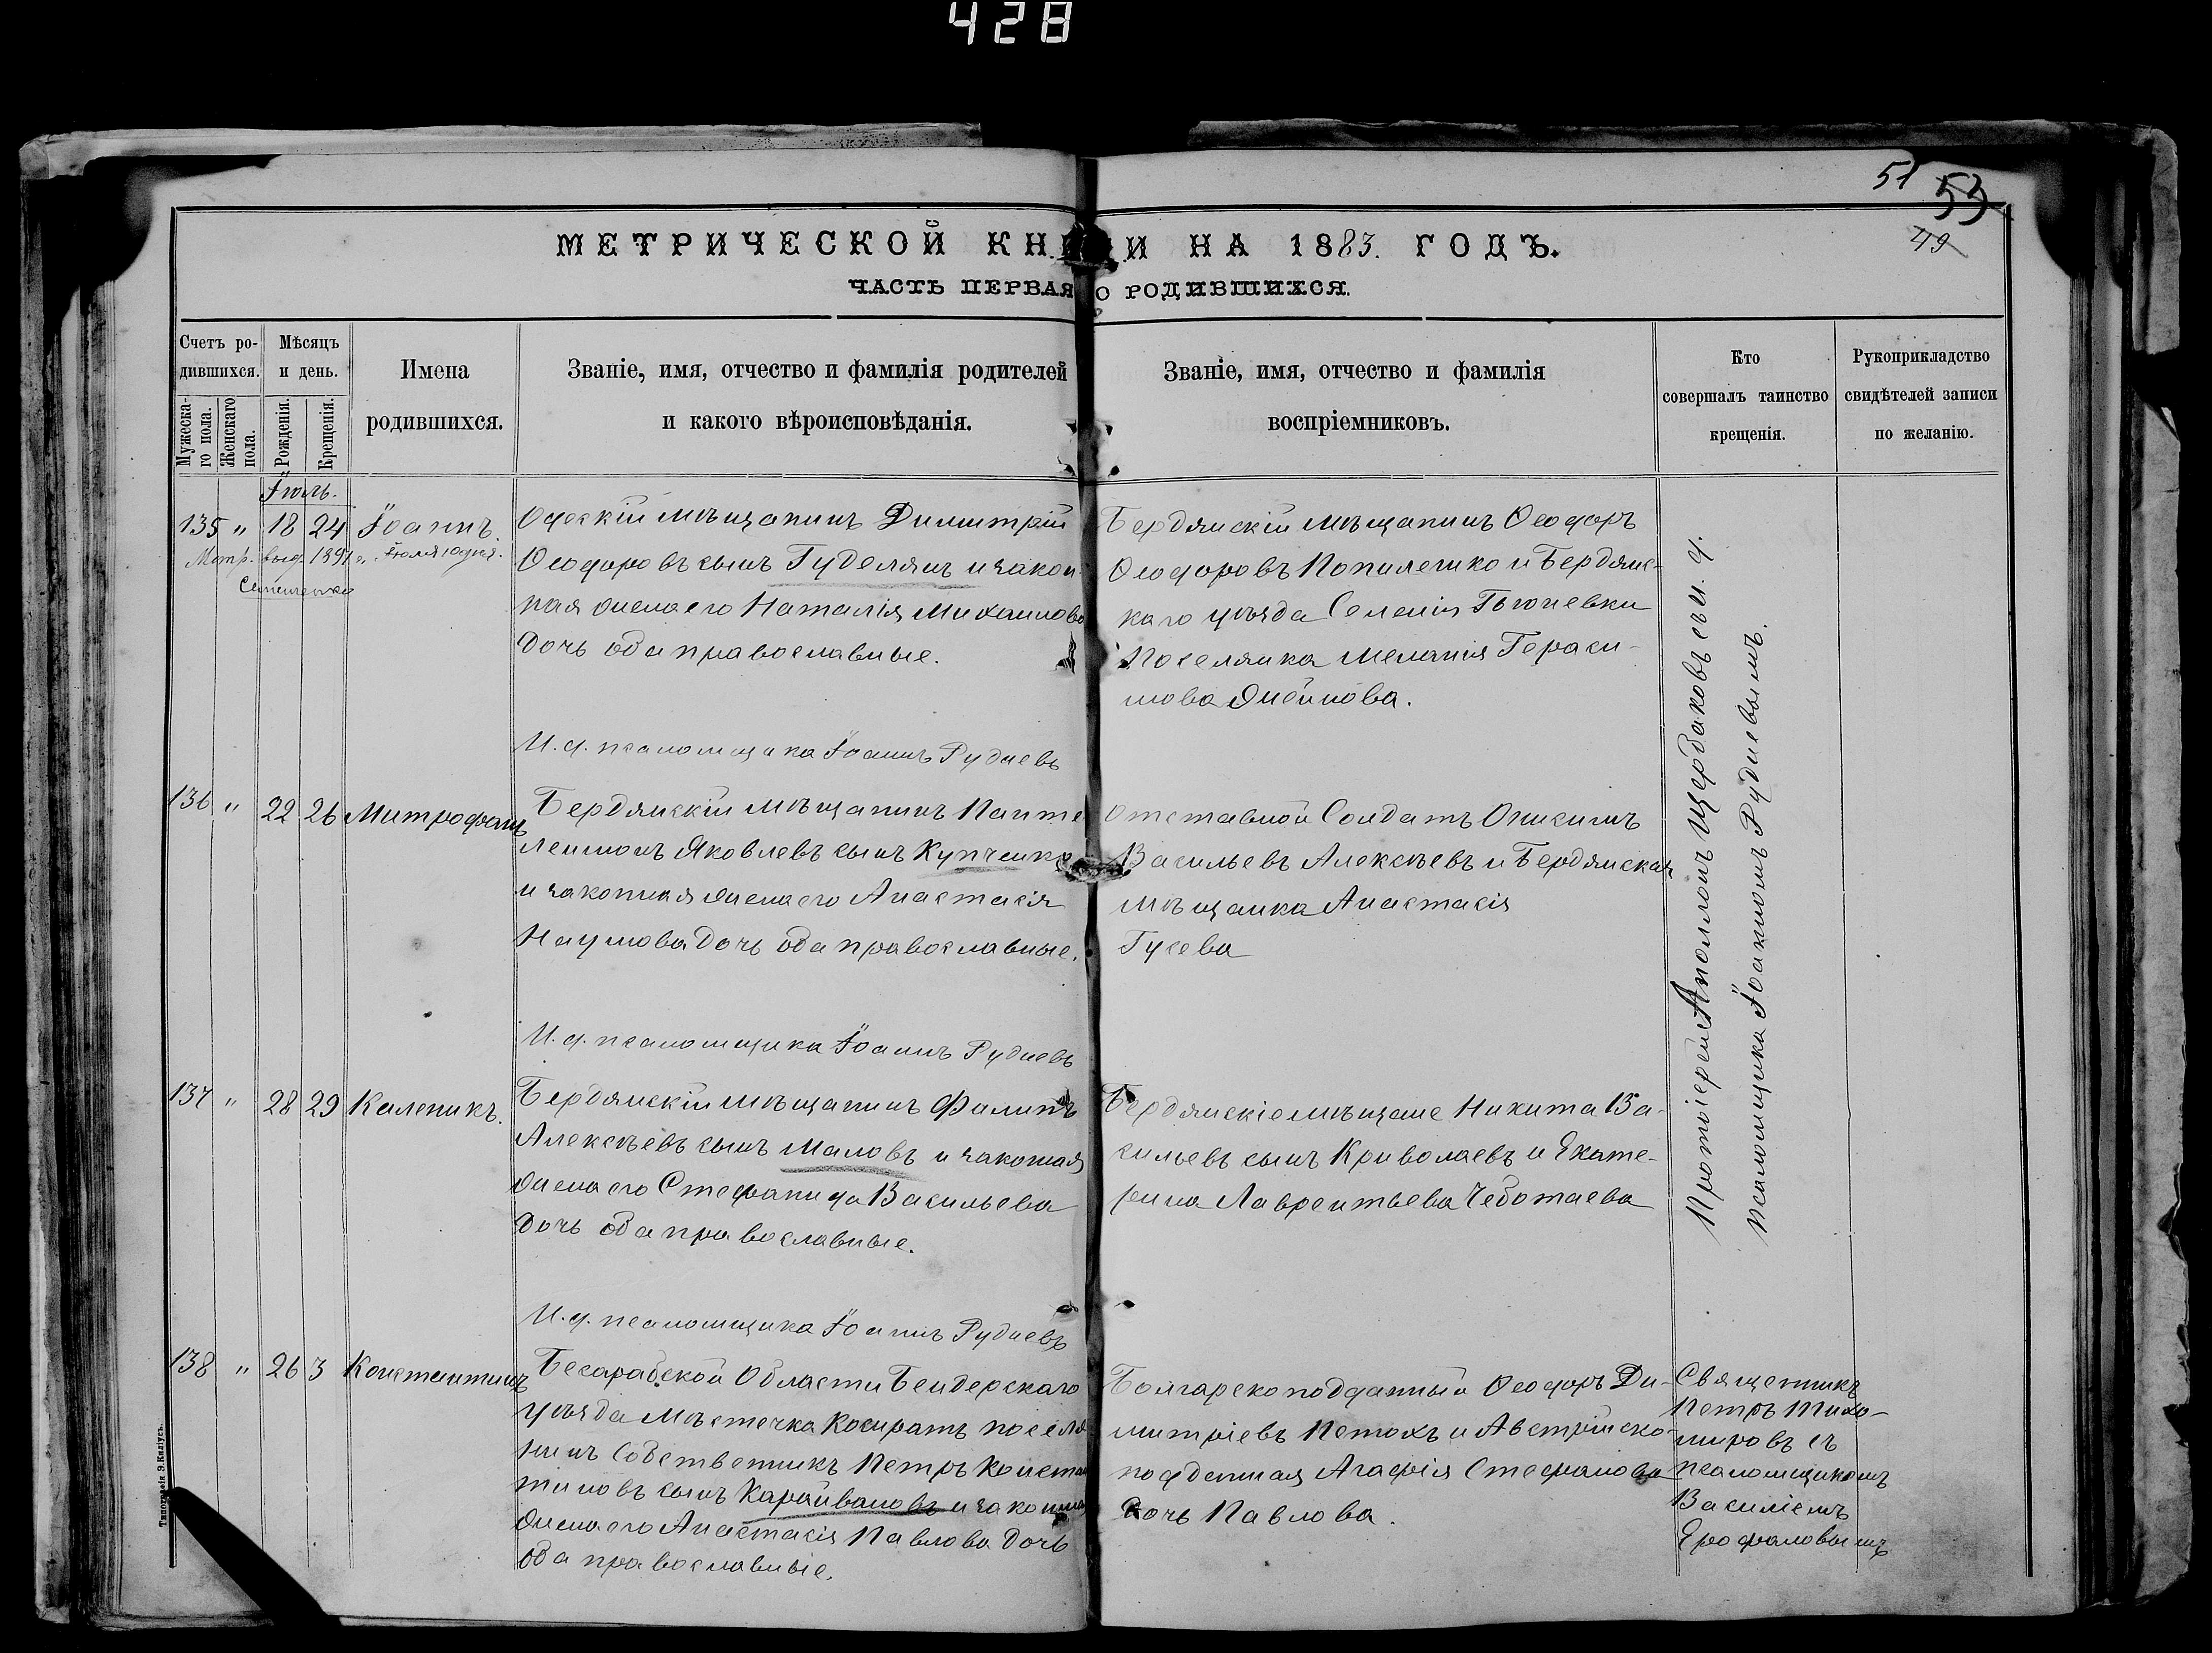 428
51 53
49
МЕТРИЧЕСКОЙ КНИГИ НА 1883. ГОДЪ.
ЧАСТЬ ПЕРВАЯ О РОДИВШИХСЯ.
Счетъ ро-
дившихся.
Мужеска-
го пола.
Женскаго
пола.
Мѣсяцъ
и день.
Рожденія.
Крещенія.
Имена
родившихся.
Званіе, имя, отчество и фамилія родителей
и какого вѣроисповѣданія.
Званіе, имя, отчество и фамилія
воспріемниковъ.
Кто
совершалъ таинство
крещенія.
Рукоприкладство
свидѣтелей записи
по желанію.
Іюль.
135 " 18 24 Іоаннъ.
Метр. выд. 1891 г. Іюля 10 дня.
Одескій мѣщанинъ Димитрій
Ѳеодоровъ сынъ Гуделянъ и закон-
ная жена его Наталія Михаилова
дочь оба православные.
Бердянскій мѣщанинъ Ѳеодоръ
Ѳеодоровъ Попилешко и Бердянс-
каго уѣзда Селенія Гюневки
поселянка Меланія Гераси-
мова
И. д. псаломщика Іоаннъ Рудиевъ
136 " 22 26 Митрофанъ
Бердянскій мѣщанинъ Панте
леимонъ Яковлевъ сынъ Купченко
и законная жена его Анастасія
Наумова дочь оба православные.
Отставной Солдатъ Онисимъ
Васильевъ Алексѣевъ и Бердянская
мѣщанка Анастасія
Гусева
И. д. псаломщика Іоаннъ Рудиевъ
137 " 28 29 Каленикъ.
Бердянскій мѣщанинъ Филипъ
Алексѣевъ сынъ Маловъ и законая
жена его Стефанида Васильева
дочь оба православные.
Бердянскіе мѣщане Никита Ва-
сильевъ сынъ Криволаевъ и Екате-
рина Лаврентьева Чеботаева
Протоіерей Аполлонъ Щербаковъ съ и. д.
псаломщика Іоакимомъ Рудиевымъ.
И. д. псаломщика Іоаннъ Рудиевъ
138 " 26 3 Константинъ
Бесарабской Области Бендерскаго
уѣзда Мѣстечка Комратъ поселя
нинъ Собственникъ Петръ Констан
тиновъ сынъ Карайвановъ и законная
жена его Анастасія Павлова дочь
оба православные.
Болгарско подданный Ѳеодоръ Ди-
митріевъ Петохъ и Австрійско-
подденная Агафія Стефанова
дочь Павлова.
Священникъ
Петръ Тихо-
мировъ съ
псаломщикомъ
Василіемъ
Ерофаловымъ
Типографія Э. Киліусъ.